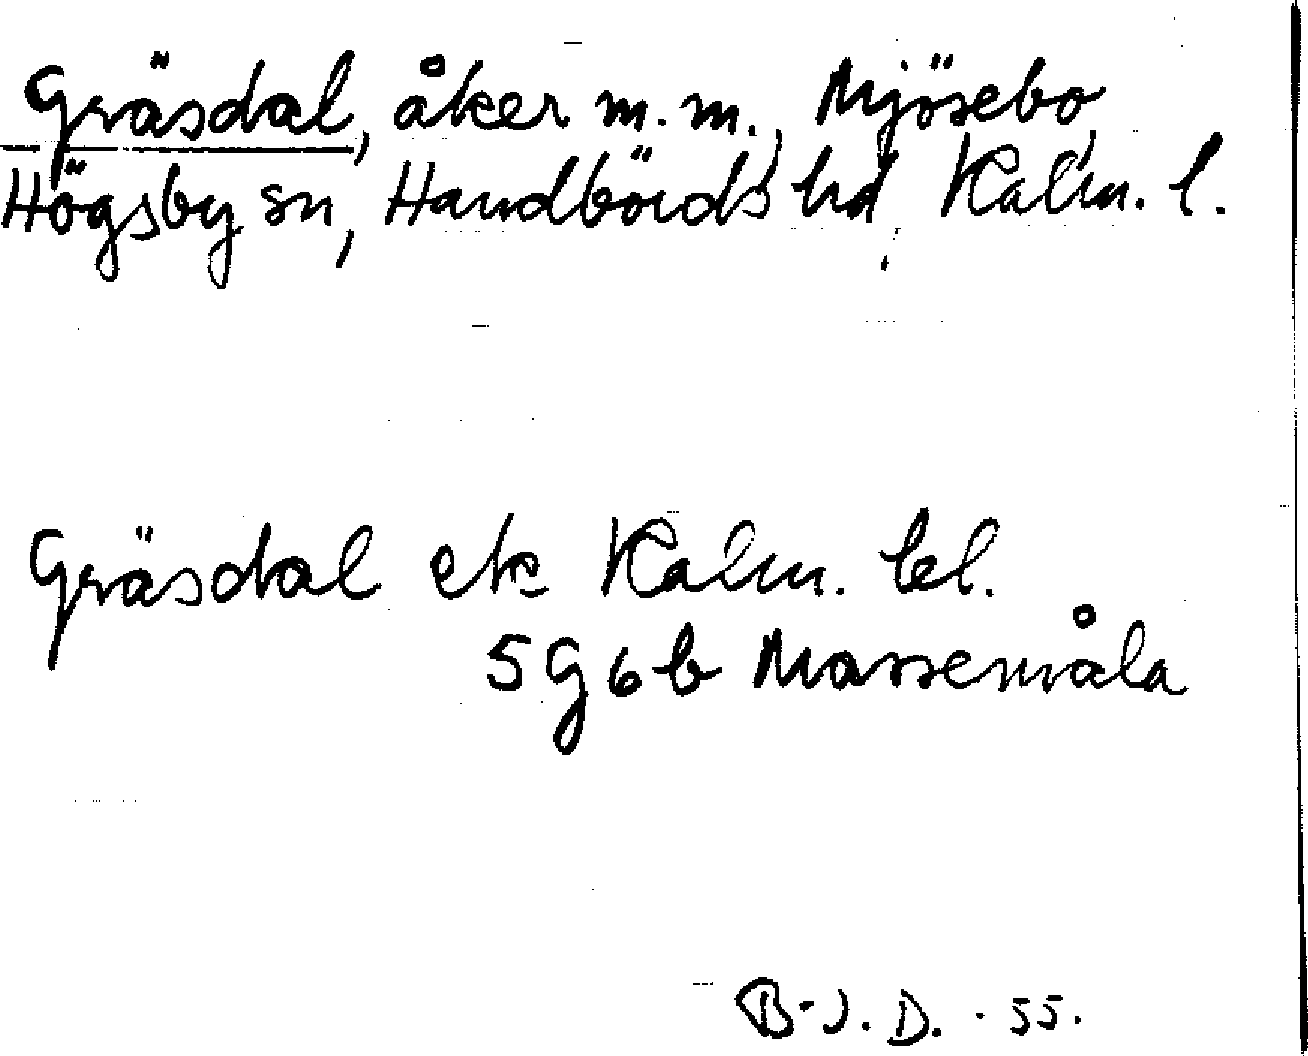 Gräsdal, åker m.m., Mjösebo,
Högsby sn, Handbörds hd, Kalm. l.
Gräsdal ek Kalm. bl.
5 G 6 b Massemåla
B-J. D. - 55.